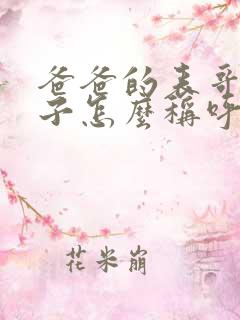 爸爸的表哥
子怎麼稱呼
花米崩